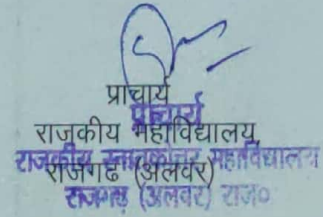 प्राचार्य
प्राचार्य
राजकीय महाविद्यालय,
राजकीय स्नातकोत्तर महाविद्यालय
राजगढ (अलवर)
राजगढ़ (अलवर) राज०